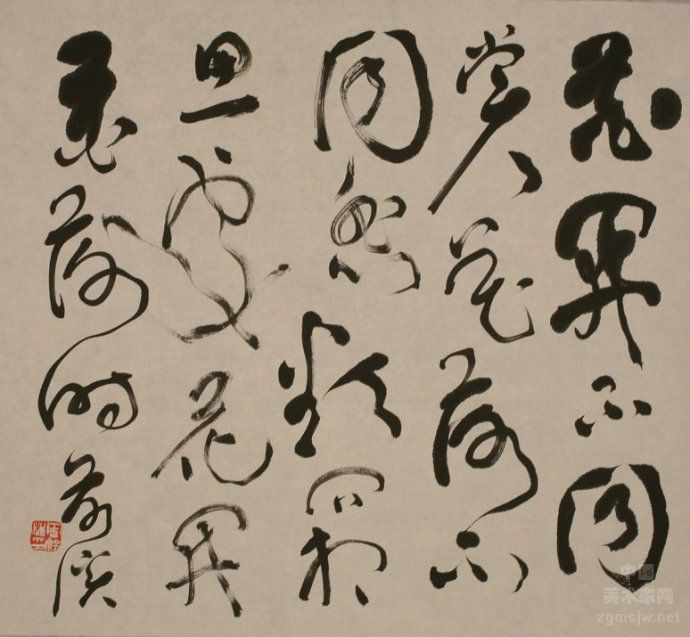 花開不同
賞花落不
同悲欲問相
思處花開
花落時
中国
美术家网
zgmsjw.net